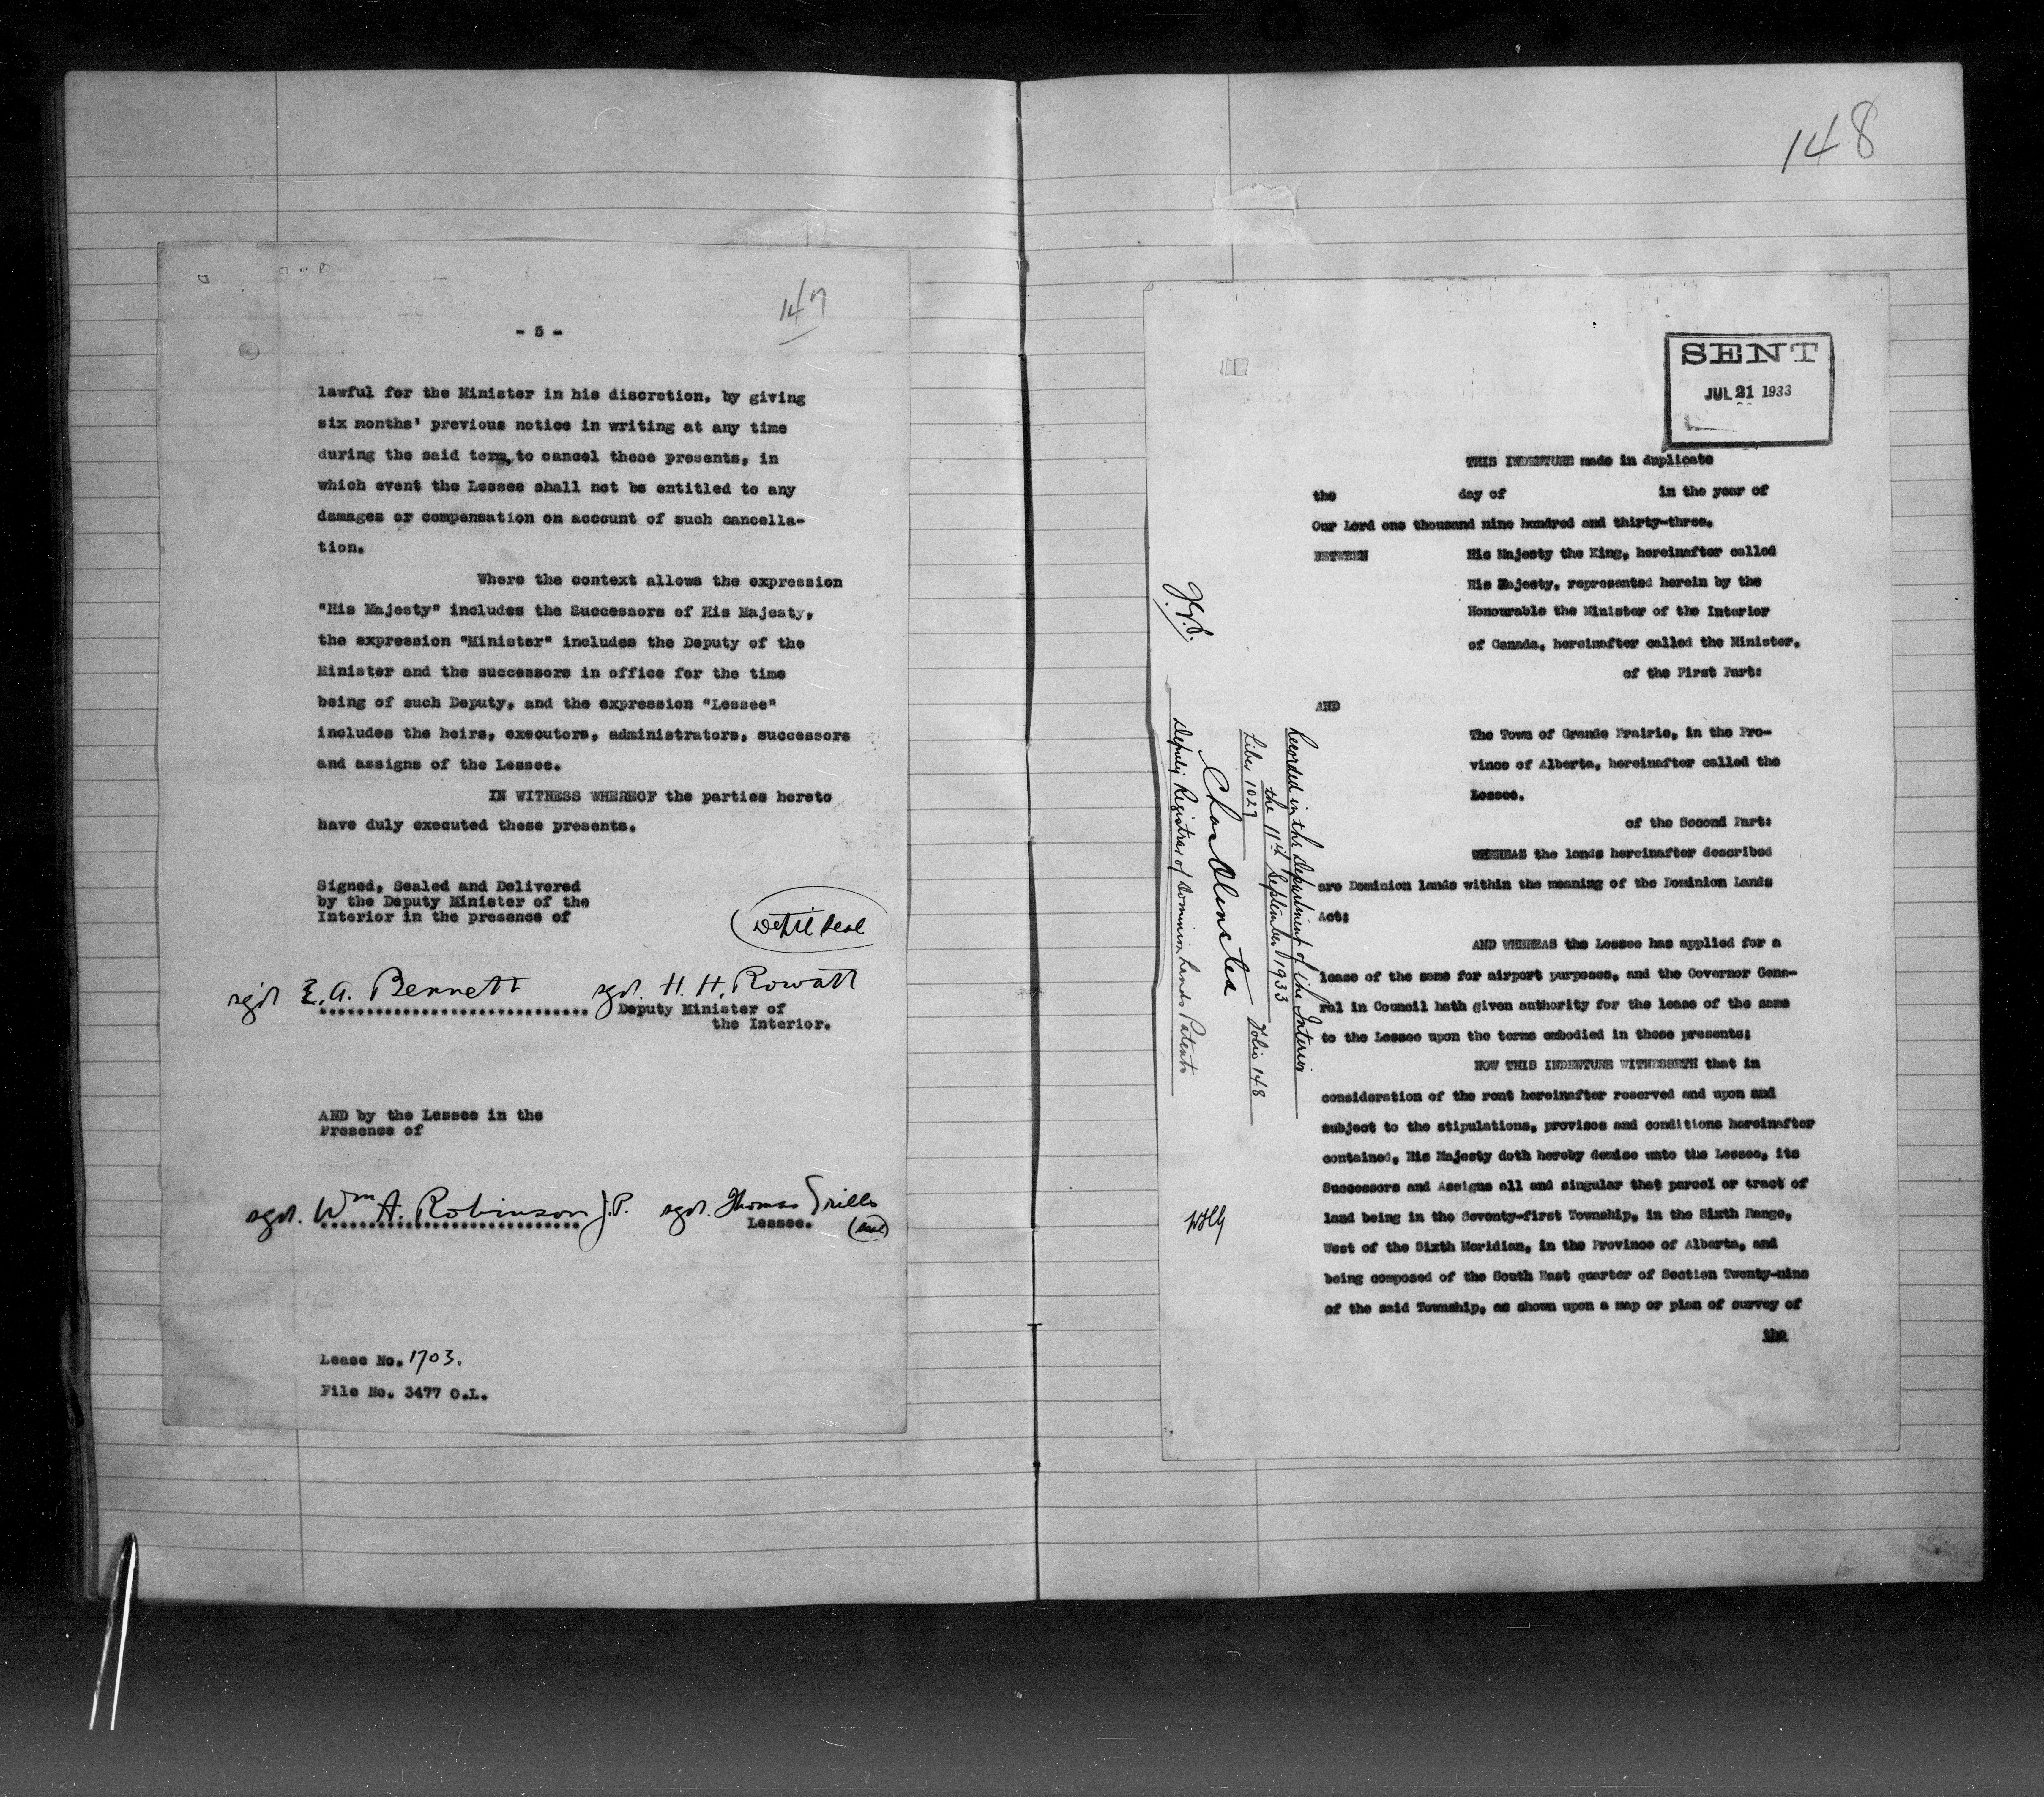 147
- 5 -
lawful for the Minister in his discretion, by giving
six months' previous notice in writing at any time
during the said term, to cancel these presents, in
which event the Lessee shall not be entitled to any
damages or compensation on account of such cancella-
tion.
Where the context allows the expression
"His Majesty" includes the Successors of His Majesty,
the expression "Minister" includes the Deputy of the
Minister and the successors in office for the time
being of such Deputy, and the expression "Lessee"
includes the heirs, executors, administrators, successors
and assigns of the Lessee.
IN WITNESS WHEREOF the parties hereto
have duly executed these presents.
Signed, Sealed and Delivered
by the Deputy Minister of the
Interior in the presence of
Dept'l Seal
sgd. E. A. Bennett sgd. H. H. Rowatt
Deputy Minister of
the Interior.
AND by the Lessee in the
Presence of
sgd. Wm A. Robinson J.P. sgd. Thomas
Lessee. (Seal)
Lease No. 1703.
File No. 3477 O.L.
148
SENT
JUL 21 1933
THIS INDENTURE made in duplicate
the day of in the year of
Our Lord one thousand nine hundred and thirty-three.
BETWEEN His Majesty the King, hereinafter called
His Majesty, represented herein by the
Honourable the Minister of the Interior
of Canada, hereinafter called the Minister,
of the First Part:
AND
The Town of Grande Prairie, in the Pro-
vince of Alberta, hereinafter called the
Lessee,
of the Second Part:
WHEREAS the lands hereinafter described
are Dominion lands within the meaning of the Dominion Lands
Act:
AND WHEREAS the Lessee has applied for a
lease of the same for airport purposes, and the Governor Gene-
ral in Council hath given authority for the lease of the same
to the Lessee upon the terms embodied in these presents;
NOW THIS INDENTURE WITNESSETH that in
consideration of the rent hereinafter reserved and upon and
subject to the stipulations, provisos and conditions hereinafter
contained, His Majesty doth hereby demise unto the Lessee, its
Successors and Assigns all and singular that parcel or tract of
land being in the Seventy-first Township, in the Sixth Range,
West of the Sixth Meridian, in the Province of Alberta, and
being composed of the South East quarter of Section Twenty-nine
of the said Township, as shown upon a map or plan of survey of
the
Recorded in the Department of the Interior
the 11th September 1933
Liber 1027 Folio 148
Deputy Registrar of Dominion Lands Patents